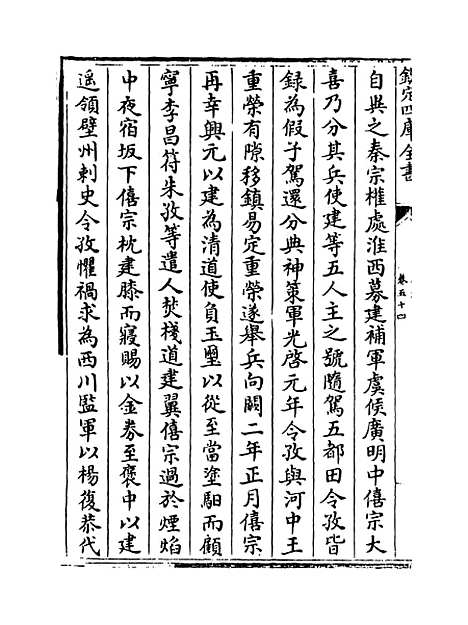 欽定四庫全書
卷五十四
自與之秦宗權處淮西募建補軍虞候廣明中僖宗大
喜乃分其兵使建等五人主之號隨駕五都田令孜皆
録為假子駕還分典神策軍光啓元年令孜與河中王
重榮有隙移鎮易定重榮遂舉兵向闕二年正月僖宗
再幸興元以建為清道使負玉璽以從至當塗馹而顧
寧李昌符朱孜等遣人焚棧道建翼僖宗過於煙焰
中夜宿坂下僖宗枕建膝而寢賜以金券至褒中以建
遥領壁州刺史令孜懼禍求為西川監軍以楊復恭代